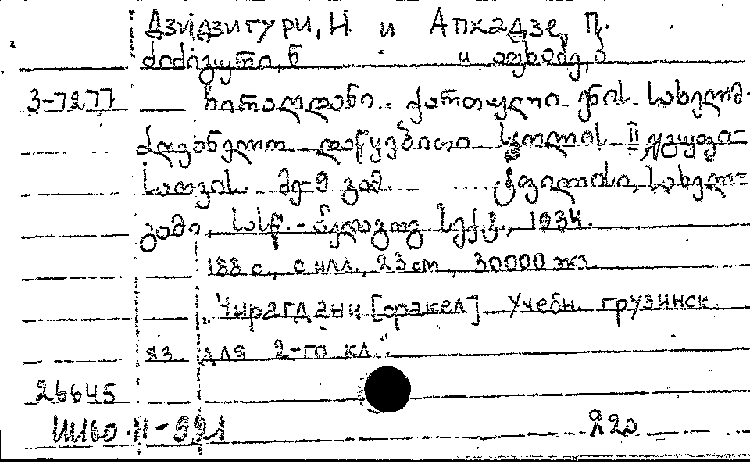 Дзидзигури, Н и Апхадзе, П.
ძიძიგური, ნ и აფხაძე, პ
3-7277 — ჩირაღდანი. ქართული ენის სახელმ-
ძღვანელო დაწყებითი სკოლის II ჯგუფი-
სათვის. მე-9 გამ. ტფილისი, სახელ-
გამი, სას. - პედაგოგ სექტ., 1934.
188 с., с илл., 23 cm, 30000 экз.
"Чирагдани [оракел] Учебн. грузинск.
яз. для 2-го кл."
26645